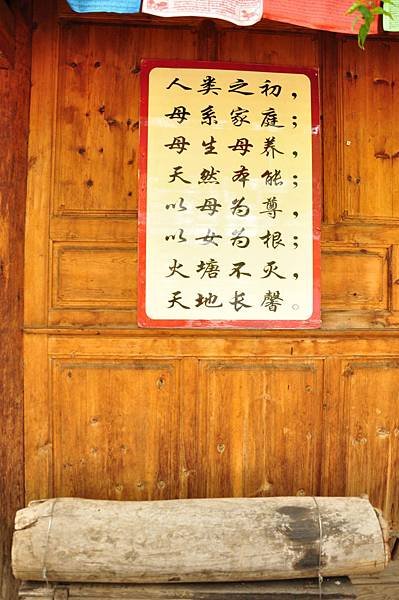 人类之初，
母系家庭；
母生母养，
天然本能；
以母为尊，
以女为根；
火塘不灭，
天地长馨。